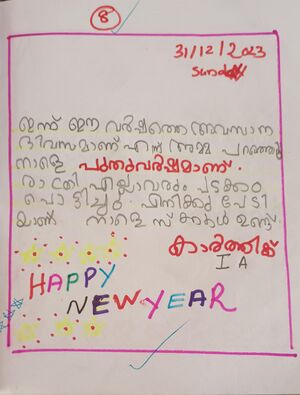 8
31/12/2023
Sunday
ഇന്ന് ഈ വർഷത്തെ അവസാന
ദിവസമാണ് എന്ന് അമ്മ പറഞ്ഞു
നാളെ പുതുവർഷമാണ്.
രാത്രി എല്ലാവരും പടക്കം
പൊട്ടിച്ചു എനിക്കു പേടി
യാണ് നാളെ സ്കൂൾ ഉണ്ട്.
കാർത്തിക്ക്
I A
HAPPY
NEW YEAR